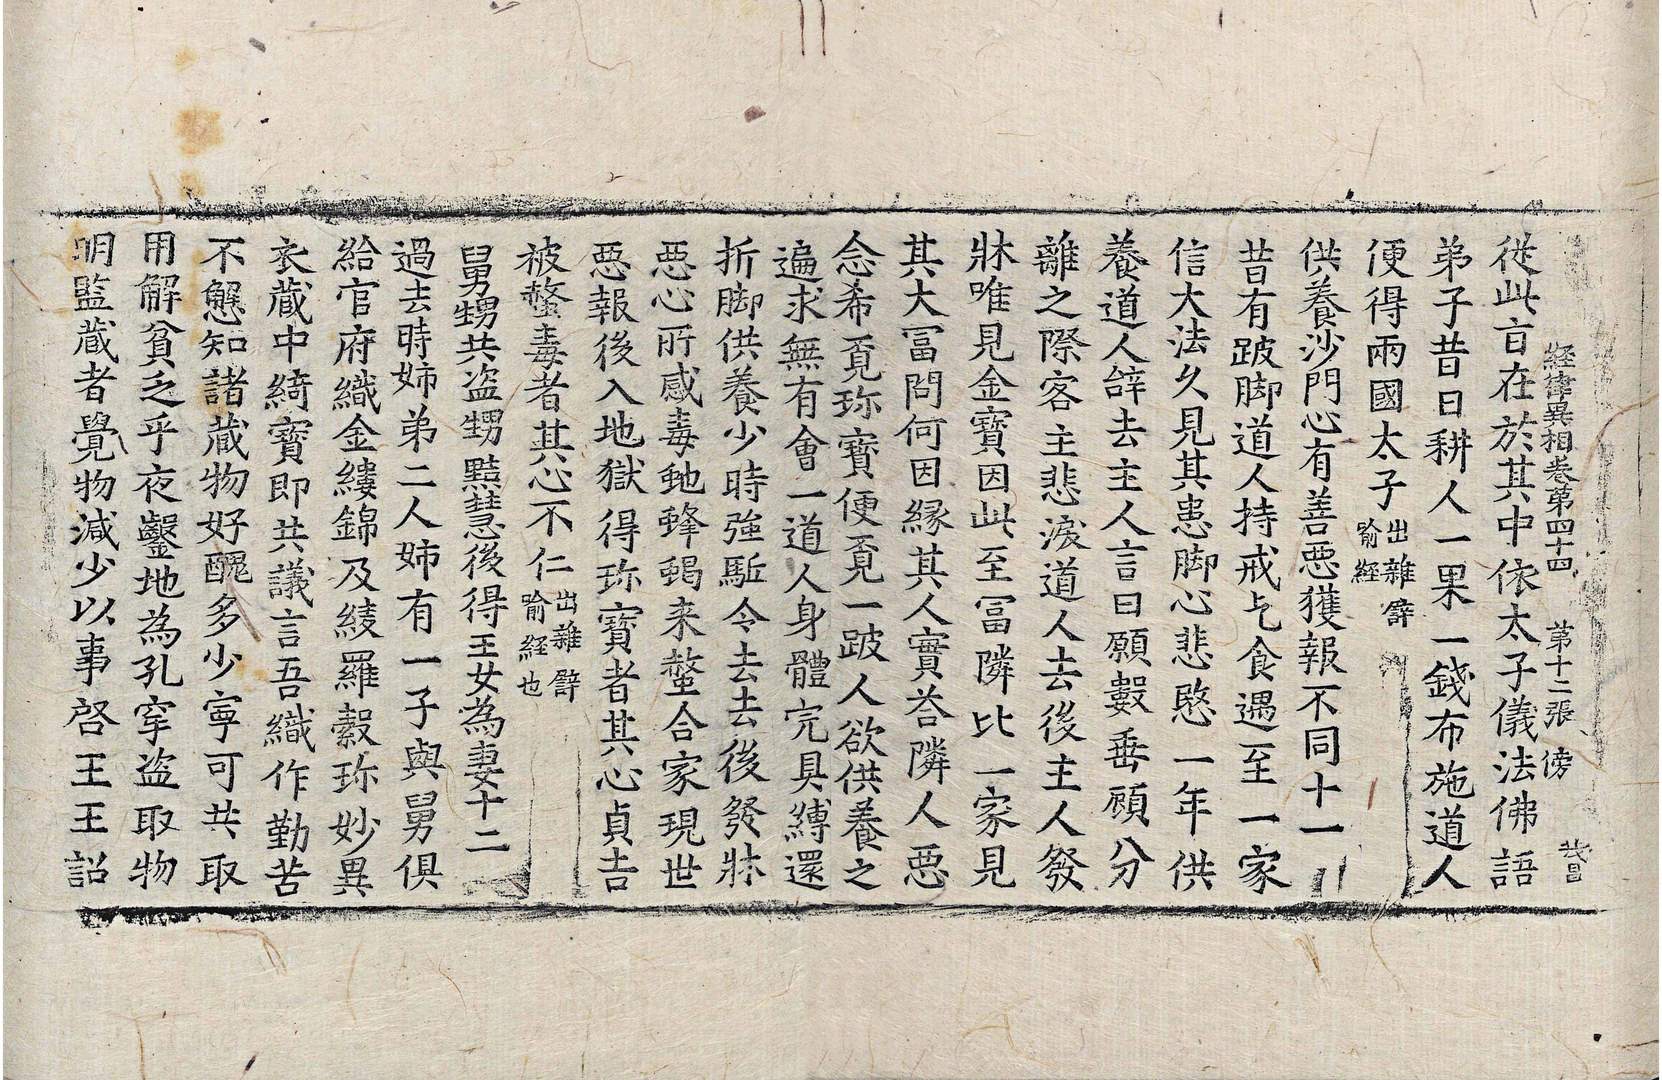 経律異相卷第四十四 第十二張 傍
從此言在於其中依太子儀法佛語
弟子昔日耕人一果一錢布施道人
便得兩國太子出雜譬喻経
供養沙門心有善惡獲報不同十一
昔有跛脚道人持戒乞食遇至一家
信大法久見其患脚心悲愍一年供
養道人辝去主人言曰願數垂顧分
離之際客主悲淚道人去後主人發
牀唯見金寶因此至冨隣比一家見
其大冨問何因縁其人實荅隣人惡
念希覔珎寶便覔一跛人欲供養之
遍求無有會一道人身體完具縛還
折脚供養少時強駈令去去後發牀
惡心所感毒虵蜂蝎来螫合家現世
惡報後入地獄得珎寶者其心貞吉
被螫毒者其心不仁出雜譬喻経也
舅甥共盗甥黠慧後得王女為妻十二
過去時姉弟二人姉有一子與舅俱
給官府織金縷錦及綾羅縠珎妙異
衣蔵中綺寶即共議言吾織作勤苦
不懈知諸蔵物好醜多少寧可共取
用解貧乏乎夜鑿地為孔穿盗取物
明監蔵者覺物減少以事啓王王詔